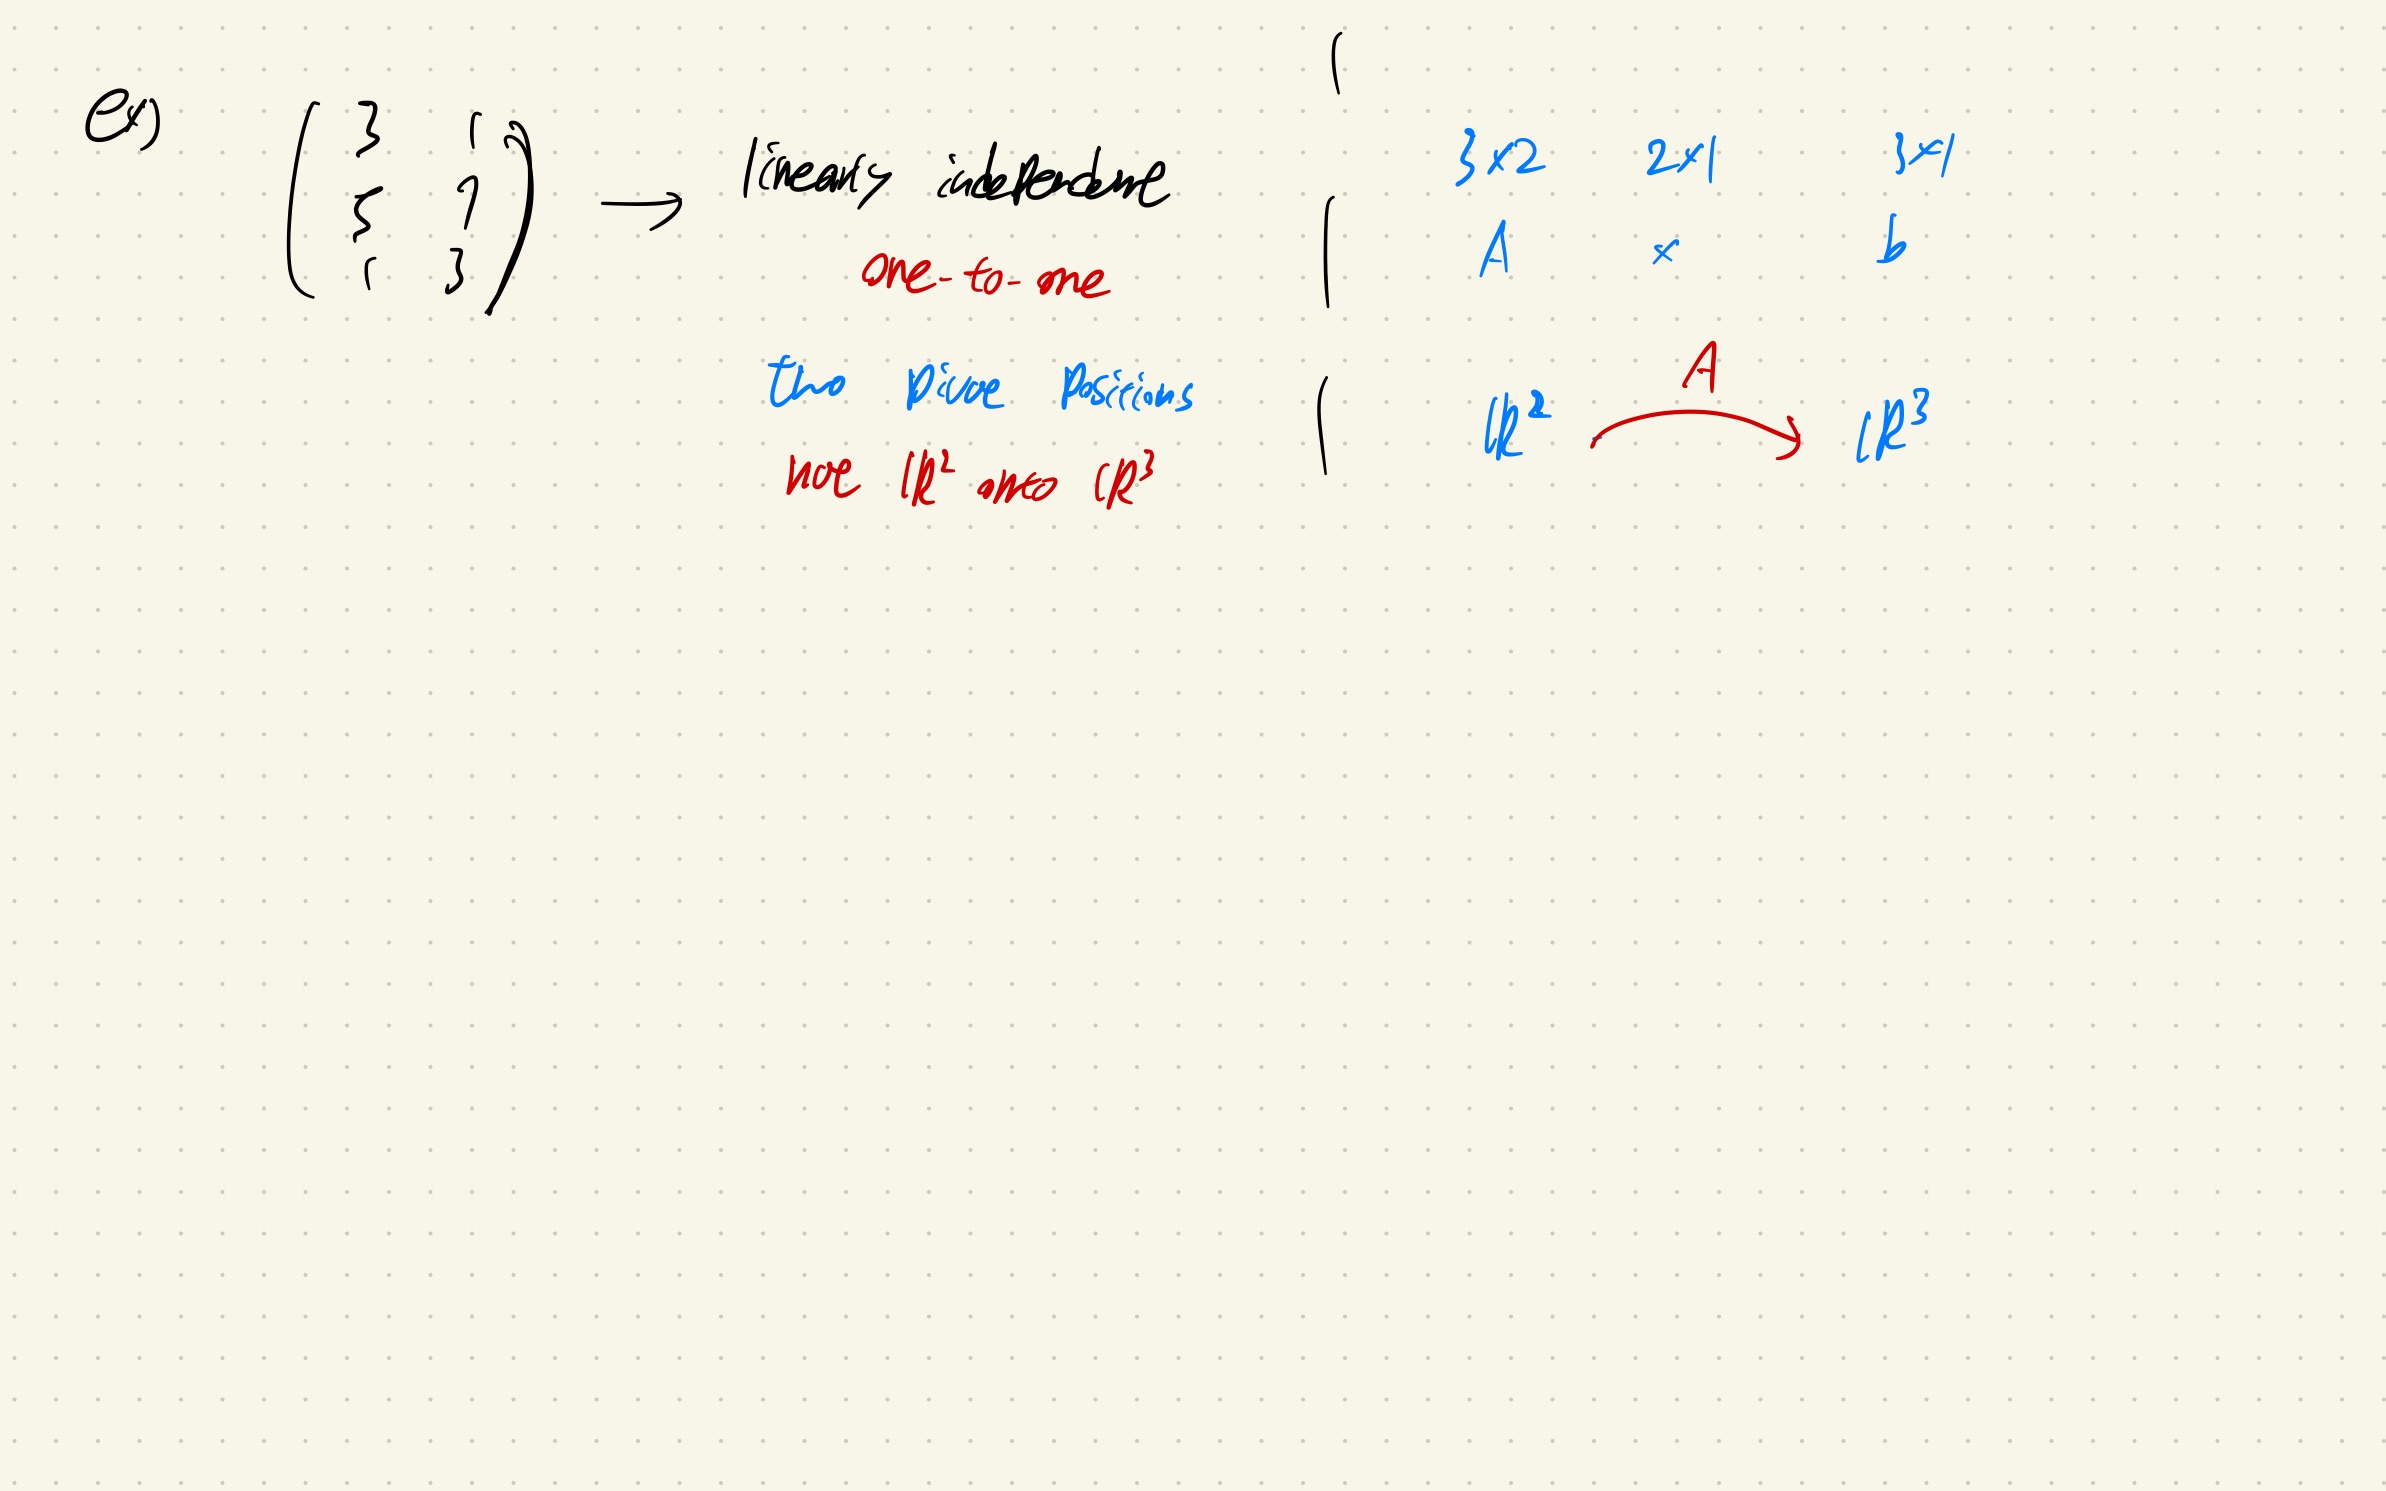 ex) ( 3 1
5 7
1 3 ) → linearly independent
one-to-one
two pivot positions
not ℝ² onto ℝ³
3×2 2×1 3×1
A x b
A
ℝ² → ℝ³